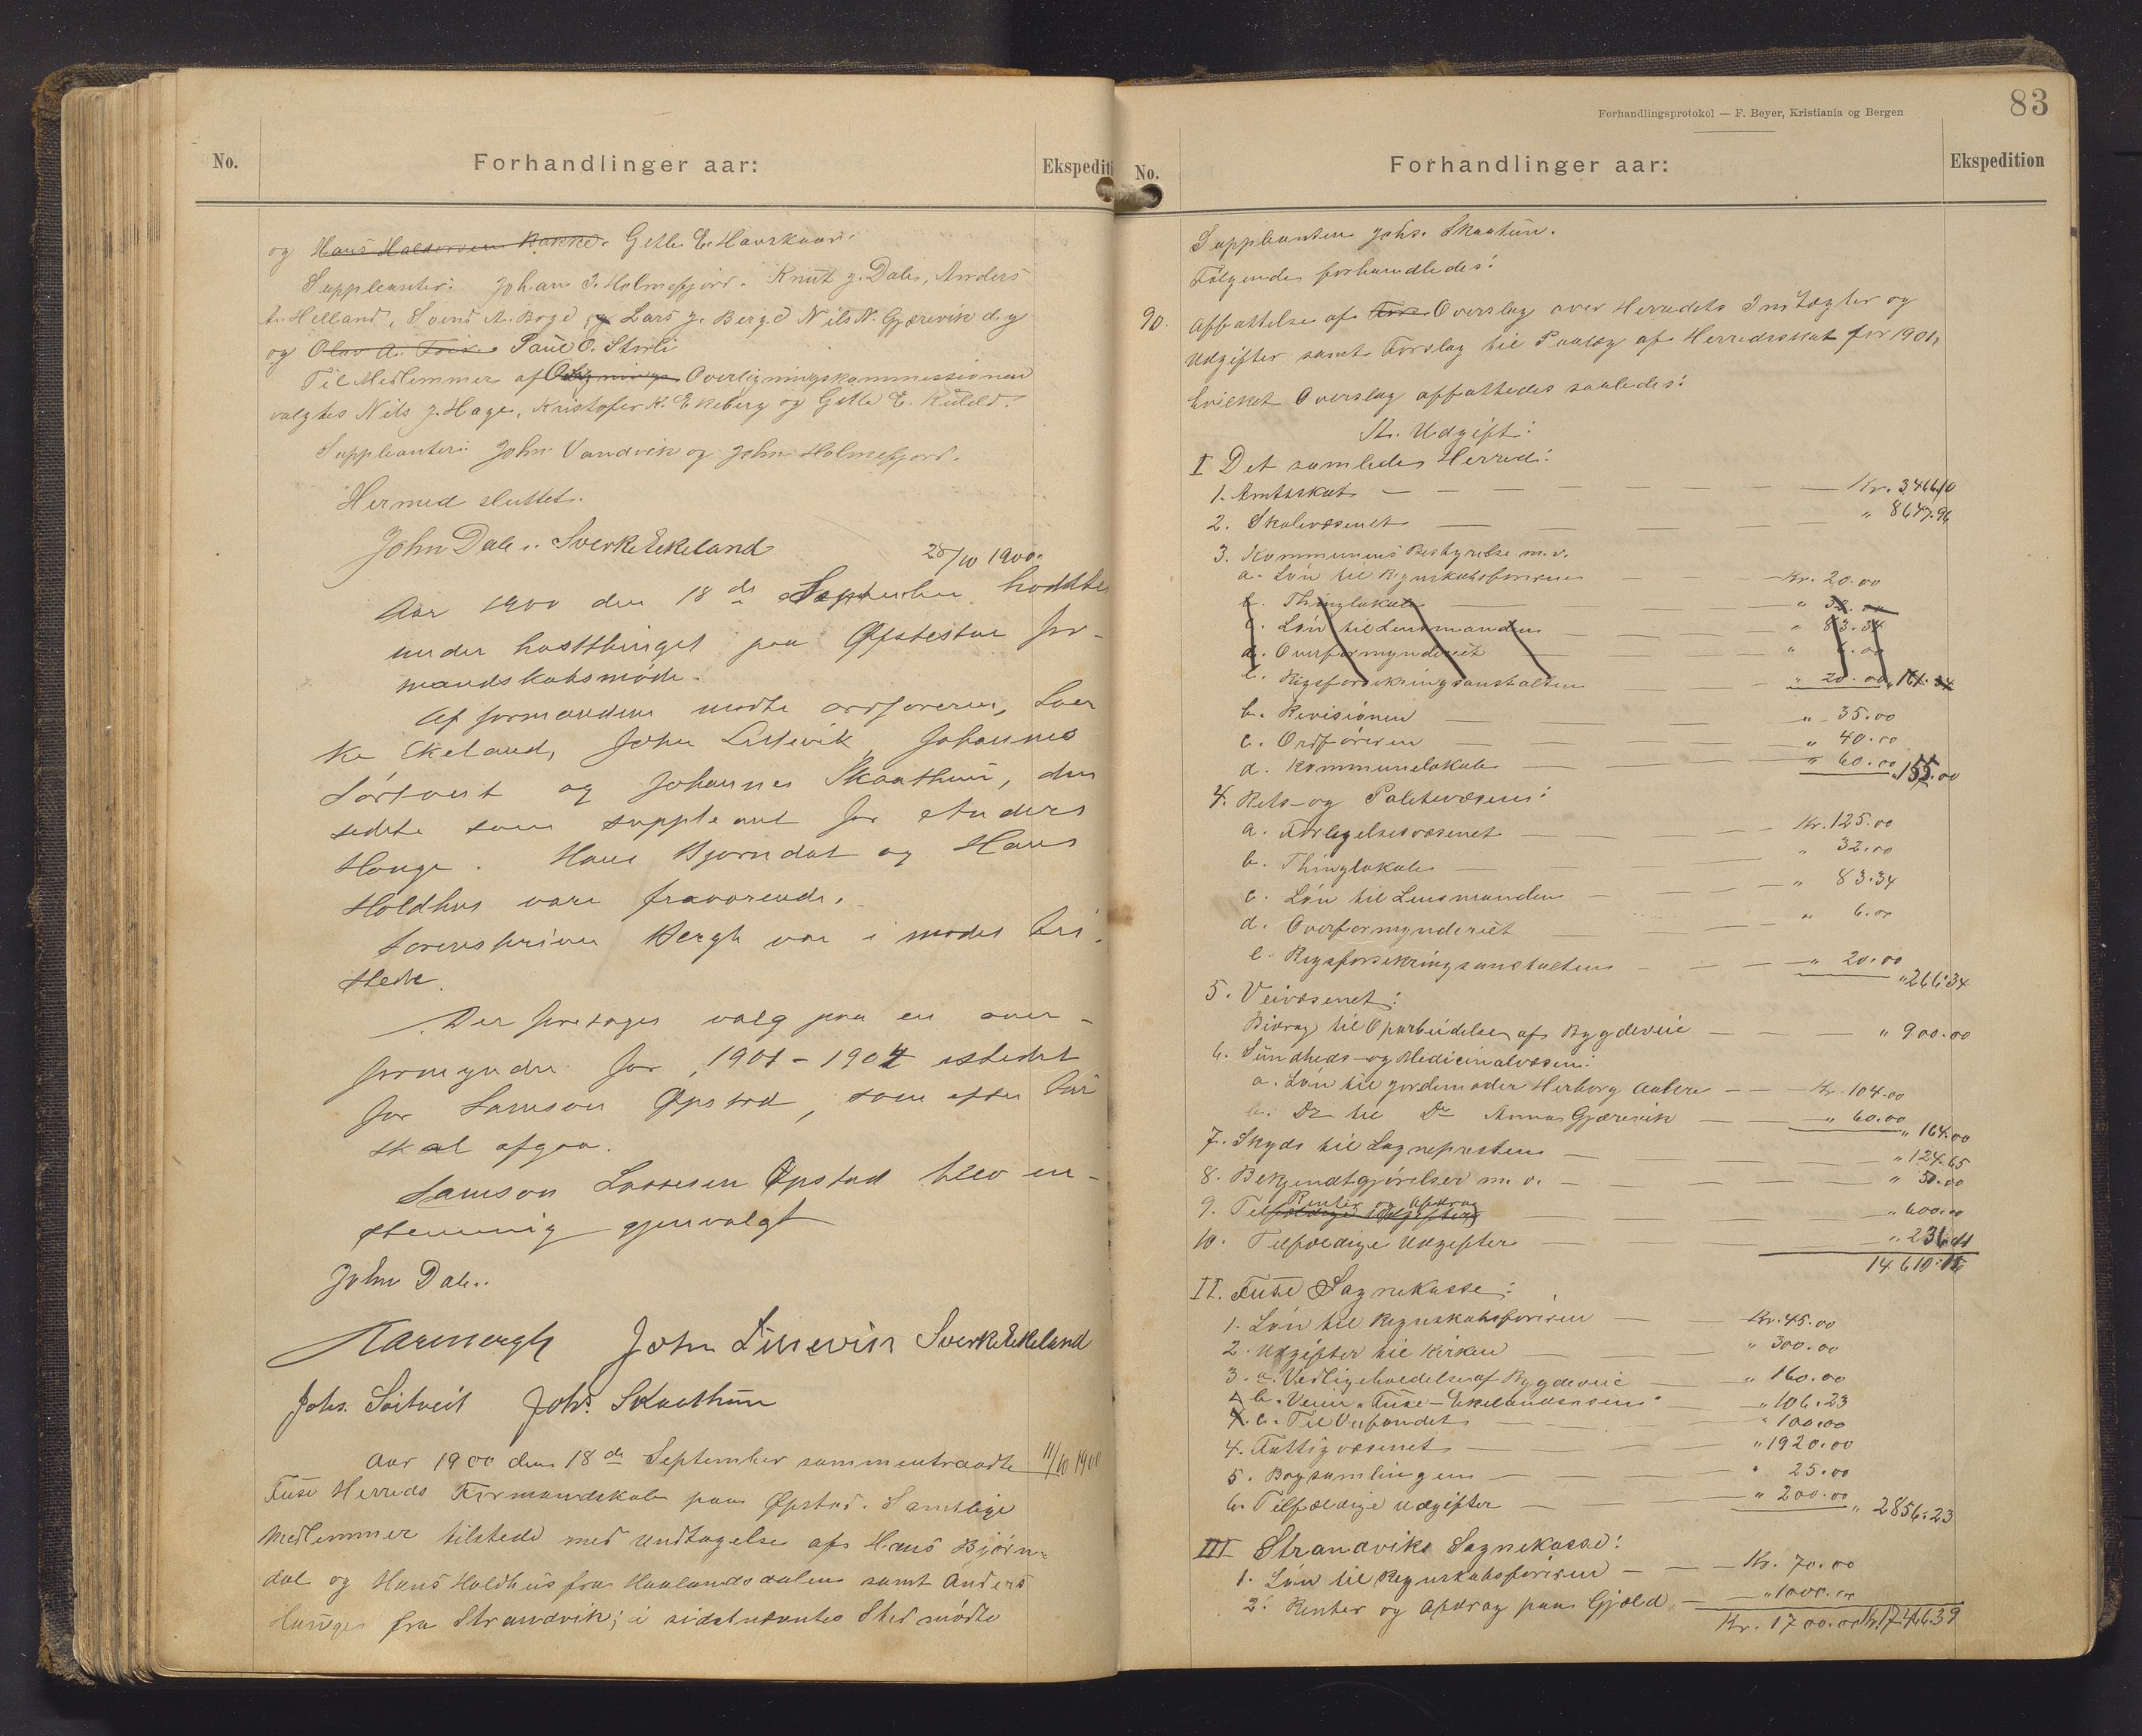 No.
Forhandlinger aar:
Ekspediti
og Hans Haldorsen Bakke. Gitle E. Haurkaar.
Suppleanter: Johan J. Holmefjord. Knut J. Dale, Anders
A. Helland, Svend A. Boge, og Lars J. Berge Nils N. Gjærevik d.y
og Olav A. Paul O. Storli
Til Medlemmer af Overligningskommissionen
valgtes Nils J. Hage, Kristofer K. Ekeberg og Gitle E. Kileld.
Suppleanter: John Vandvik og John Holmefjord.
Hermed sluttet.
John Dale. Sverke Ekeland
25/10 1900.
Aar 1900 den 18de September holdtes
under høstthinget paa Øpstestad for-
mandskabsmøde.
Af formændene mødte ordføreren, Sver
ke Ekeland, John Litlevik, Johannes
Sørtveit og Johannes Skaathun, den
sidste som suppleant for Anders
Hauge. Hans Bjørndal og Hans
Holdhus vare fraværende.
Sorenskriver Bergh var i mødet til-
stede.
Der foretages valg paa en over-
formynder for 1901-1904 istedet
for Samson Øpstad, som efter tur
skal afgaa.
Samson Lassesen Øpstad blev en-
stemmig gjenvalgt
John Dale.
John Litlevik Sverke Ekeland
Johs. Sörtveit Johs. Skaathun
Aar 1900 den 18de September sammentraadte
11/10 1900
Fuse Herreds Formandskab paa Øpstad. Samtlige
Medlemmer tilstede med Undtagelse af Hans Bjørn-
dal og Hans Holdhus fra Haalandsdalen samt Anders
Hauge fra Strandvik; i sidstnævntes Sted mødte
Forhandlingsprotokol — F. Beyer, Kristiania og Bergen
83
No.
Forhandlinger aar:
Ekspedition
Suppleanten Johs. Skaatun.
Følgende forhandledes:
90. Affattelse af Overslag over Herredets Indtægter og
Udgifter samt Forslag til Paalæg af Herredsskat for 1901,
hvilket Overslag affattedes saaledes:
A. Udgift:
I Det samlede Herred:
1. Amtsskat — Kr. 3466.10
2. Skolevæsenet — " 8647.96
3. Kommunens Bestyrelse m.v.
a. Løn til Regnskabsføreren — Kr. 20.00
b. Thinglokale — " 32.00
c. Løn til Lensmanden — " 83.34
d. Overformynderiet — " 6.00
e. Rigsforsikringsanstalten — " 20.00
b. Revisionen — " 35.00
c. Ordføreren — " 40.00
d. Kommunelokale — " 60.00 " 155.00
4. Rets- og Politivæsen:
a. Forligelsesvæsenet — Kr. 125.00
b. Thinglokale — " 32.00
c. Løn til Lensmanden — " 83.34
d. Overformynderiet — " 6.00
e. Rigsforsikringsanstalten — " 20.00 " 266.34
5. Veivæsenet:
Bidrag til Oparbeidelse af Bygdeveie — " 900.00
6. Sundheds- og Medicinalvæsen:
a. Løn til Jordemoder Herborg — Kr. 104.00
b. Do til Do Anna Gjærevik — " 60.00 " 164.00
7. Skyds til Sognepræsten — " 124.65
8. Bekjendtgjørelser m.v. — " 50.00
9. Tilfældige Udgifter Renter og Afdrag — " 600.00
10. Tilfældige Udgifter — " 236.
14610.
II. Fuse Sognekasse:
1. Løn til Regnskabsføreren — Kr. 45.00
2. Udgifter til Kirken — " 300.00
3. a. Vedligeholdelse af Bygdeveie — " 160.00
b. Veien Fuse-Ekelandsosen — " 106.23
c. Til Veifondet — " 100.00
4. Fattigvæsenet — " 1920.00
5. Bogsamlingen — " 25.00
6. Tilfældige Udgifter — " 200.00 " 2856.23
III Strandviks Sognekasse:
1. Løn til Regnskabsføreren — Kr. 70.00
2. Renter og Afdrag paa Gjæld — " 1000.00
Kr. 1700.00 Kr. 17466.39